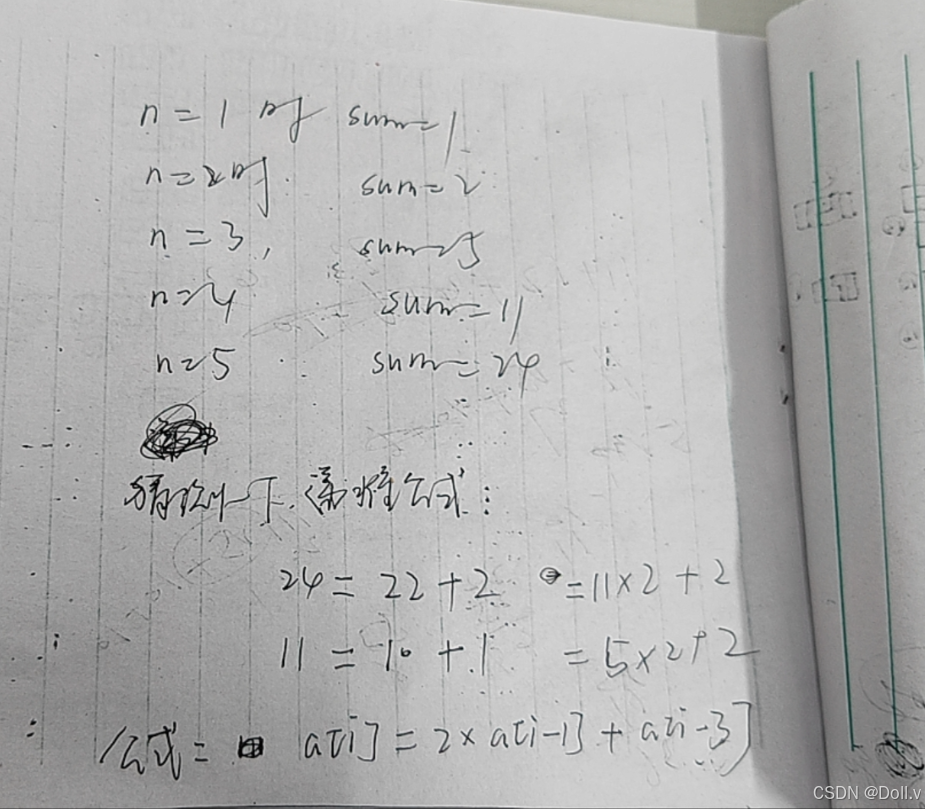 n=1时 sum=1
n=2时. sum=2
n=3, sum=5
n=4 sum=11
n=5 sum=24
猜测一下.递推公式:
24=22+2 =11×2+2
11=10+1 =5×2+2
公式= a[i]=2×a[i-1]+a[i-3]
CSDN @Doll.v